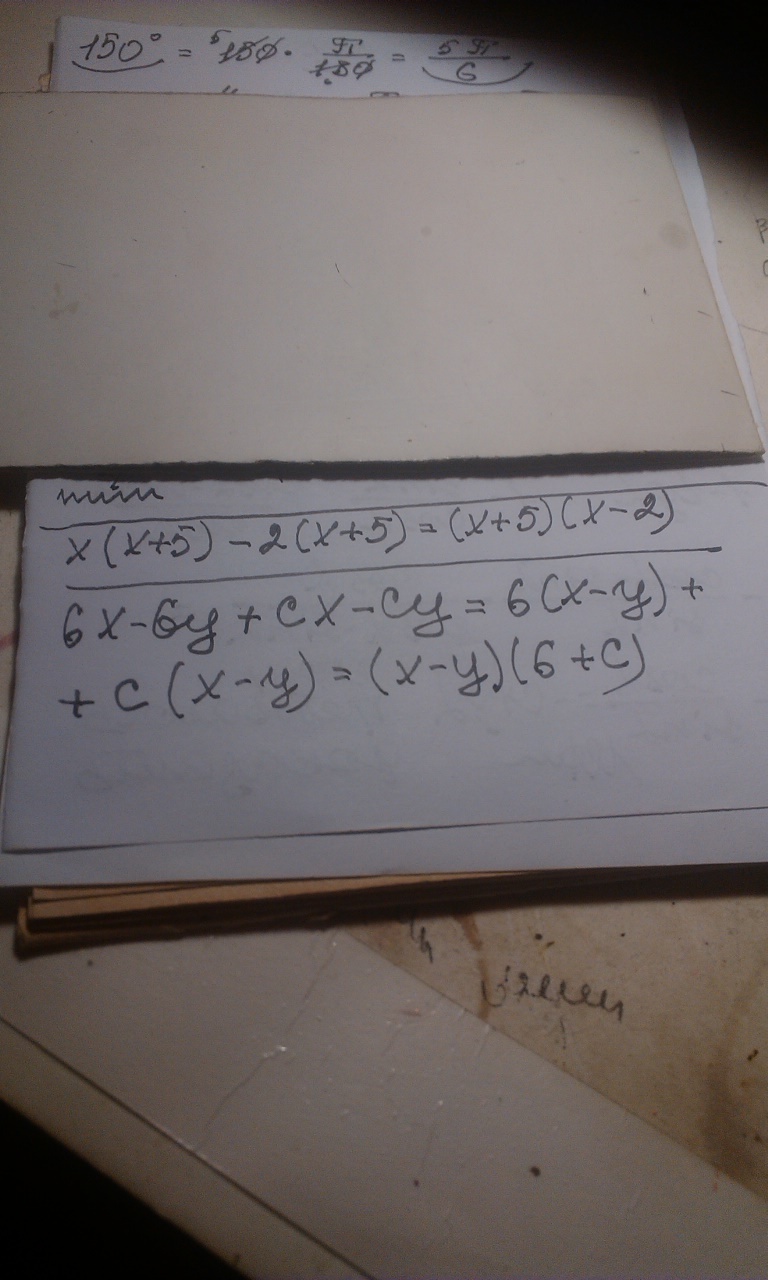 150° = ⁵150 · π/180 = 5π/6
x(x+5) - 2(x+5) = (x+5)(x-2)
6x-6y + cx-cy = 6(x-y) +
+ c(x-y) = (x-y)(6+c)